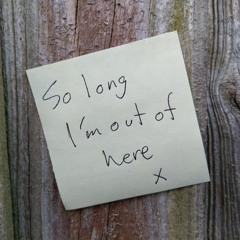 So long
I'm out of
here
x